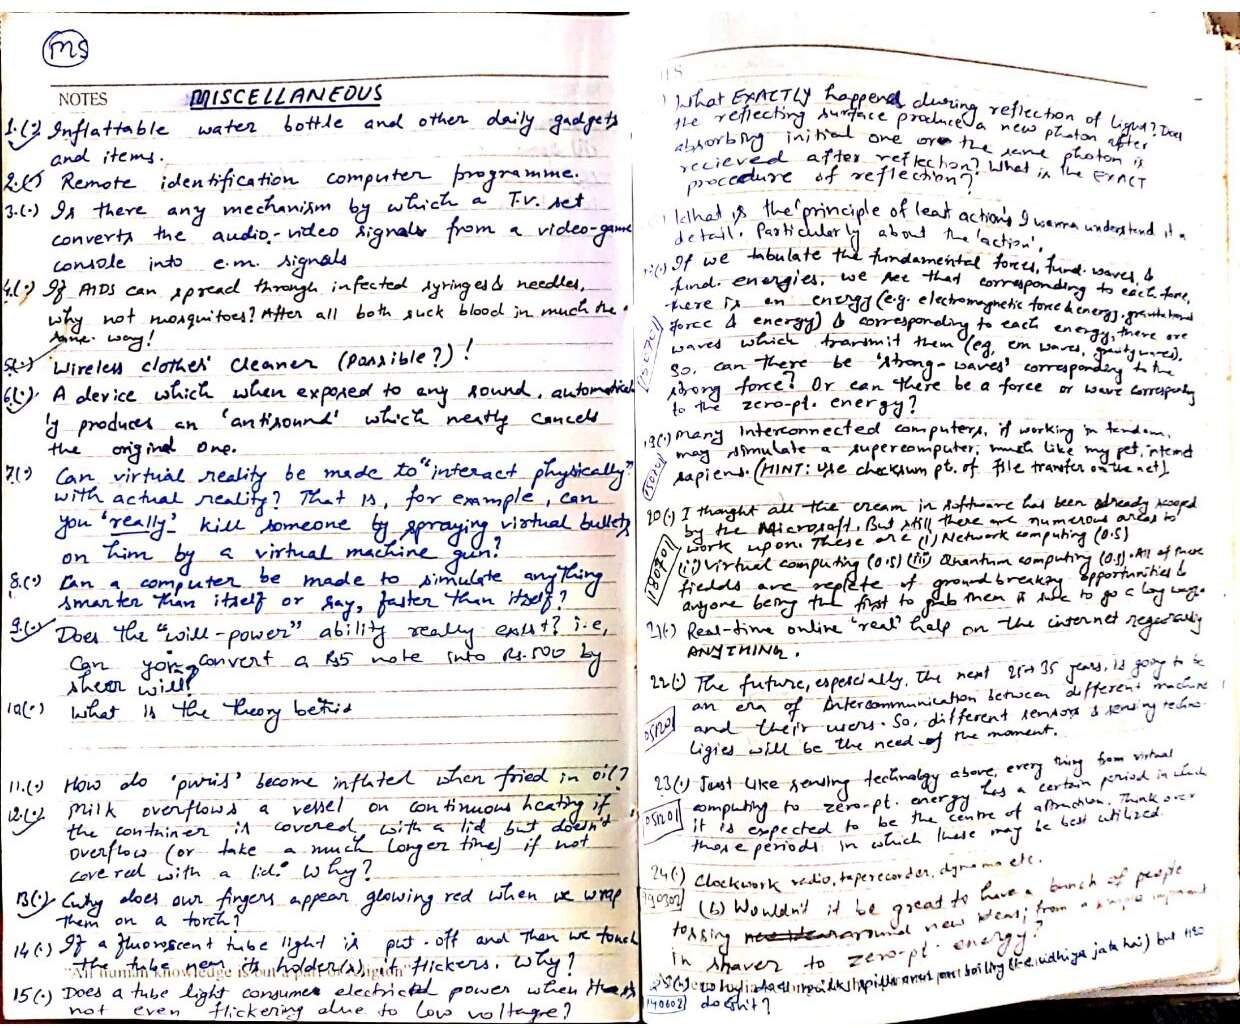 MS
NOTES MISCELLANEOUS
1.(·) Inflattable water bottle and other daily gadgets
and items.
2.(·) Remote identification computer programme.
3.(·) Is there any mechanism by which a T.V. set
converts the audio-video signals from a video-game
console into e.m. signals
4.(·) If AIDS can spread through infected syringes & needles,
why not mosquitoes? After all both suck blood in much the
same way!
5(·) Wireless clothes' cleaner (possible?)!
6.(·). A device which when exposed to any sound, automatical
ly produces an 'antisound' which neatly cancels
the original one.
7.(·) Can virtual reality be made to "interact physically"
with actual reality? That is, for example, can
you 'really' kill someone by spraying virtual bullets
on him by a virtual machine gun?
8.(·) Can a computer be made to simulate anything
smarter than itself or say, faster than itself?
9.(·) Does the "will-power" ability really exist? i.e,
Can you convert a Rs5 note into Rs.500 by
sheer will?
10(·) What is the theory behid
11.(·) How do 'puris' become inflated when fried in oil?
12.(·) Milk overflows a vessel on continuous heating if
the container is covered with a lid but doesn't
overflow (or take a much longer time) if not
covered with a lid. Why?
13(·) Why does our fingers appear glowing red when we wrap
them on a torch?
14(·) If a fluorescent tube light is put-off and then we touch
the tube near its holder(s) it flickers. Why?
"All human knowledge is but a part of religion"
15(·) Does a tube light consume electrical power when it is
not even flickering due to low voltage?
What EXACTLY happend during reflection of light? Does
the reflecting surface produce a new photon after
absorbing initial one or the same photon is
recieved after reflection? What is the EXACT
procedure of reflection?
What is the 'principle of least action'. I wanna understand it a
detail. Particularly about the 'action'.
(·) If we tabulate the fundamental forces, fund. waves, &
fund. energies, we see that corresponding to each force,
there is an energy (e.g. electromagnetic force & energy, gravitational
force & energy) & corresponding to each energy, there are
waves which transmit them (eg, em waves, gravity waves).
So, can there be 'strong-waves' corresponding to the
strong force? Or can there be a force or wave corresponding
to the zero-pt. energy?
150701
19(·) Many interconnected computers, if working in tandem,
may simulate a supercomputer; much like my pet,
sapiens. (HINT: Use checksum pt. of file transfer on the net)
150701
20(·) I thought all the cream in software has been already scooped
by the Microsoft. But still there are numerous areas to
work upon. These are (i) Network computing (O.S)
(ii) Virtual computing (O.S) (iii) Quantum computing (O.S). All of these
fields are replete of groundbreaking opportunities &
anyone being the first to grab them is sure to go a long way.
180701
21(·) Real-time online 'real' help on the internet regarding
ANYTHING.
22(·) The future, especially, the next 25 → 35 years, is going to be
an era of Intercommunication between different machine
and their users. So, different sensors & sensing techno-
ligies will be the need of the moment.
051201
23(·) Just like sensing technology above, every thing from virtual
computing to zero-pt. energy has a certain period in which
it is expected to be the centre of attraction. Think over
those periods in which these may be best utilized.
051201
24(·) Clockwork radio, taperecorder, dynamo etc.
190302 (b) Wouldn't it be great to have a bunch of people
tossing around new ideas; from a simple
in shaver to zero-pt. energy?
25(·) Why does milk spills over on boiling but H2O
140602 doesn't?